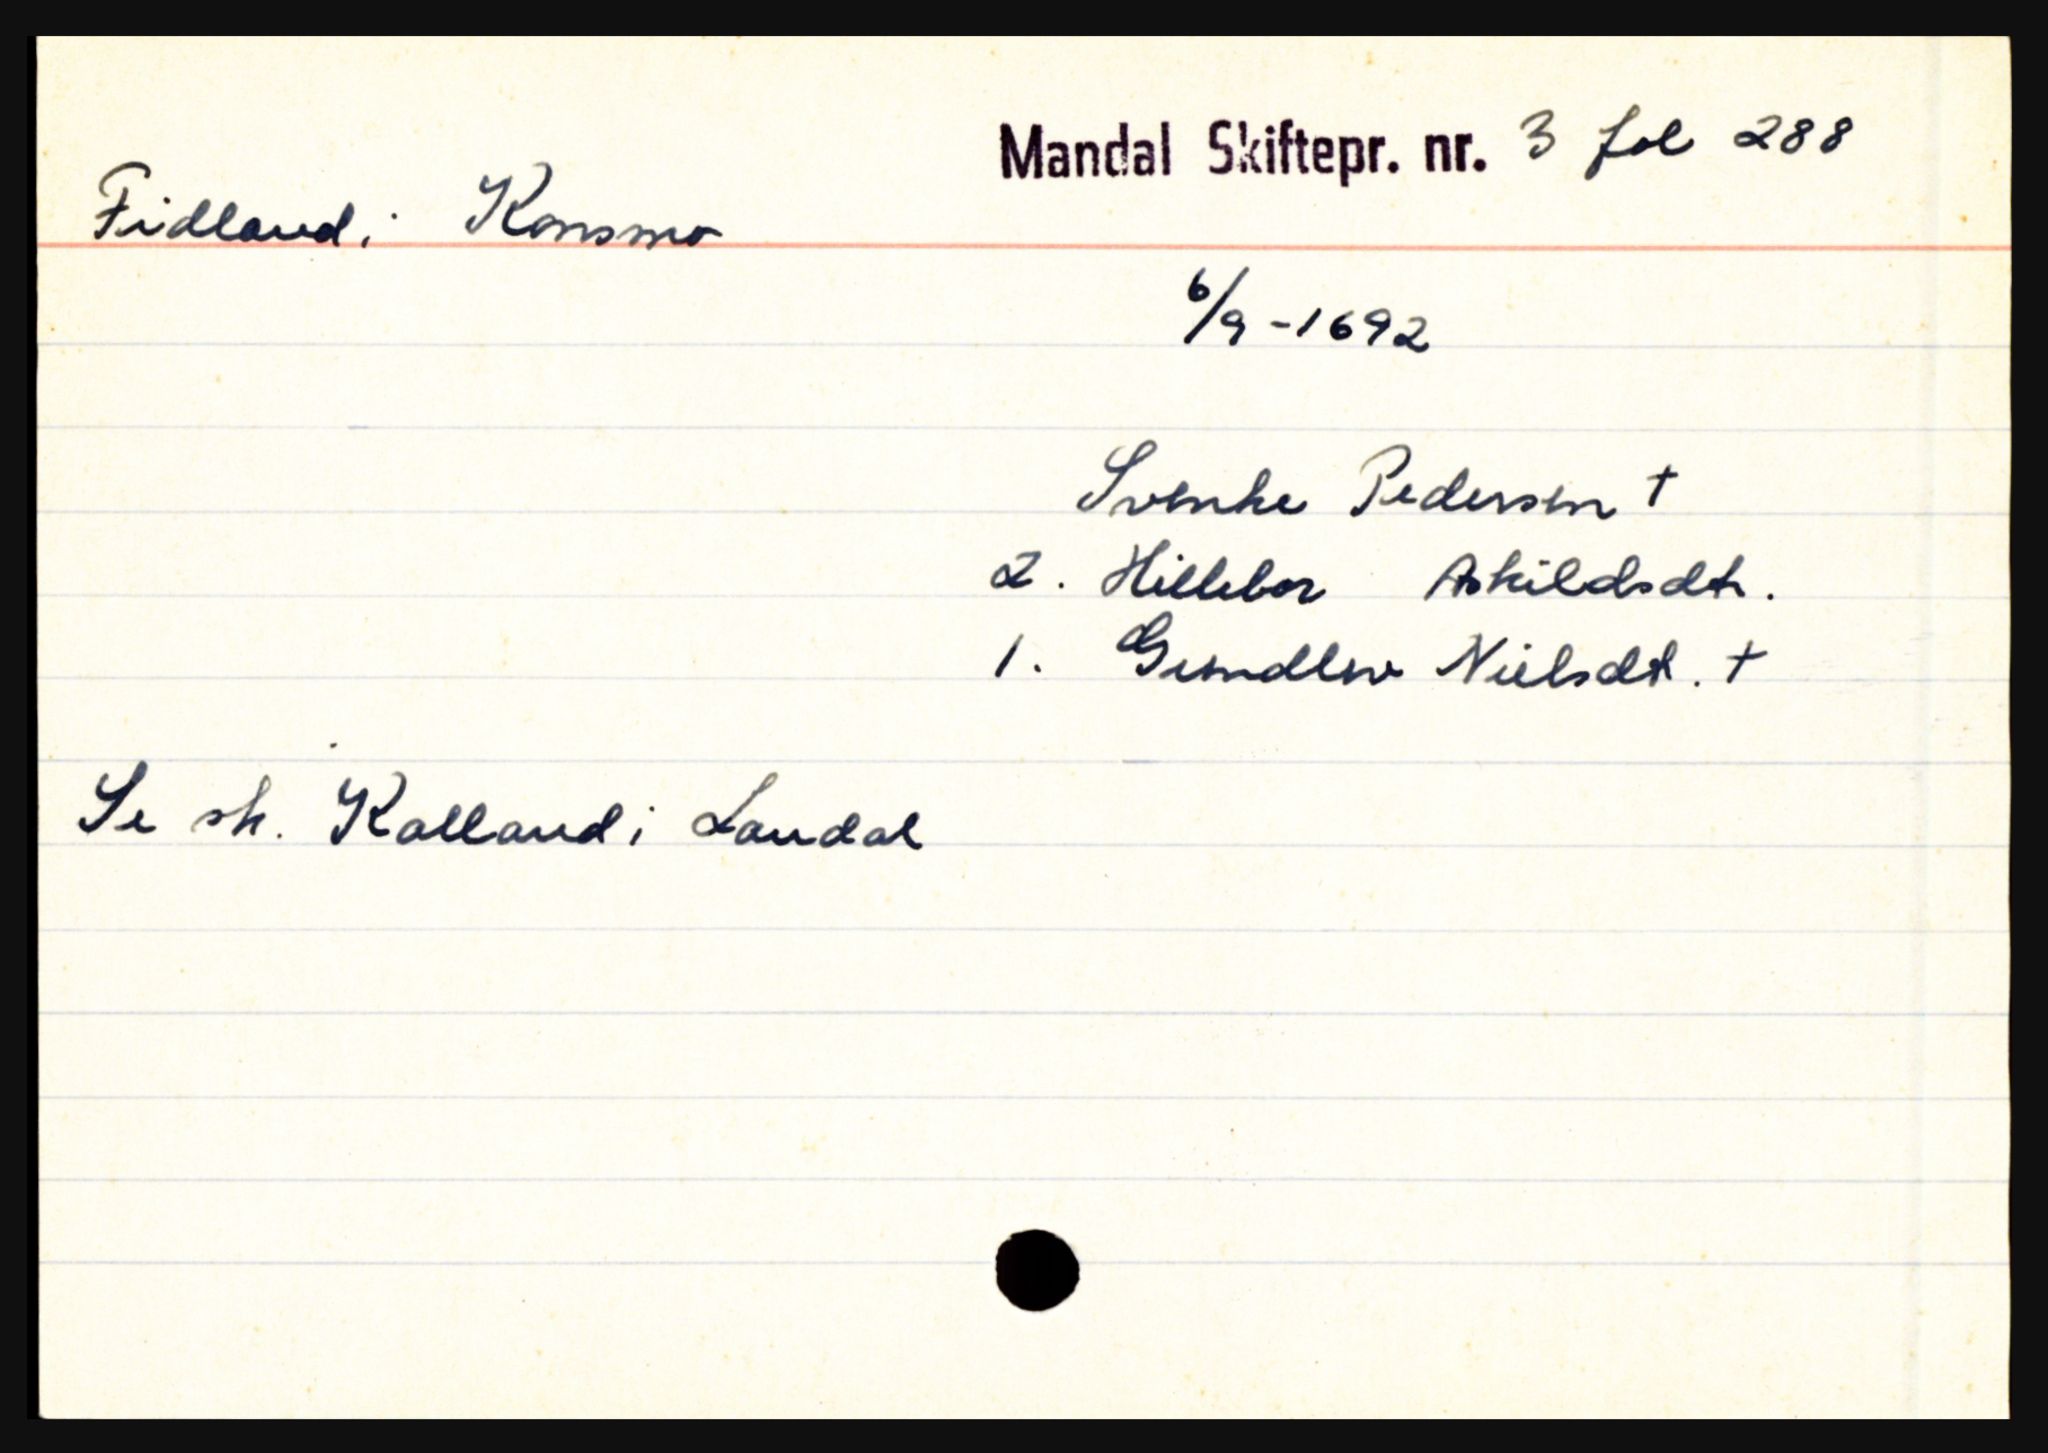 Mandal Skiftepr. nr. 3 fol 288
Fidland i Konsmo
6/9-1692
Svenke Pedersen †
2. Hillebor Askildsdtr.
1. Gundlew Nielsdt. †
Se sk. Kalland i Laudal